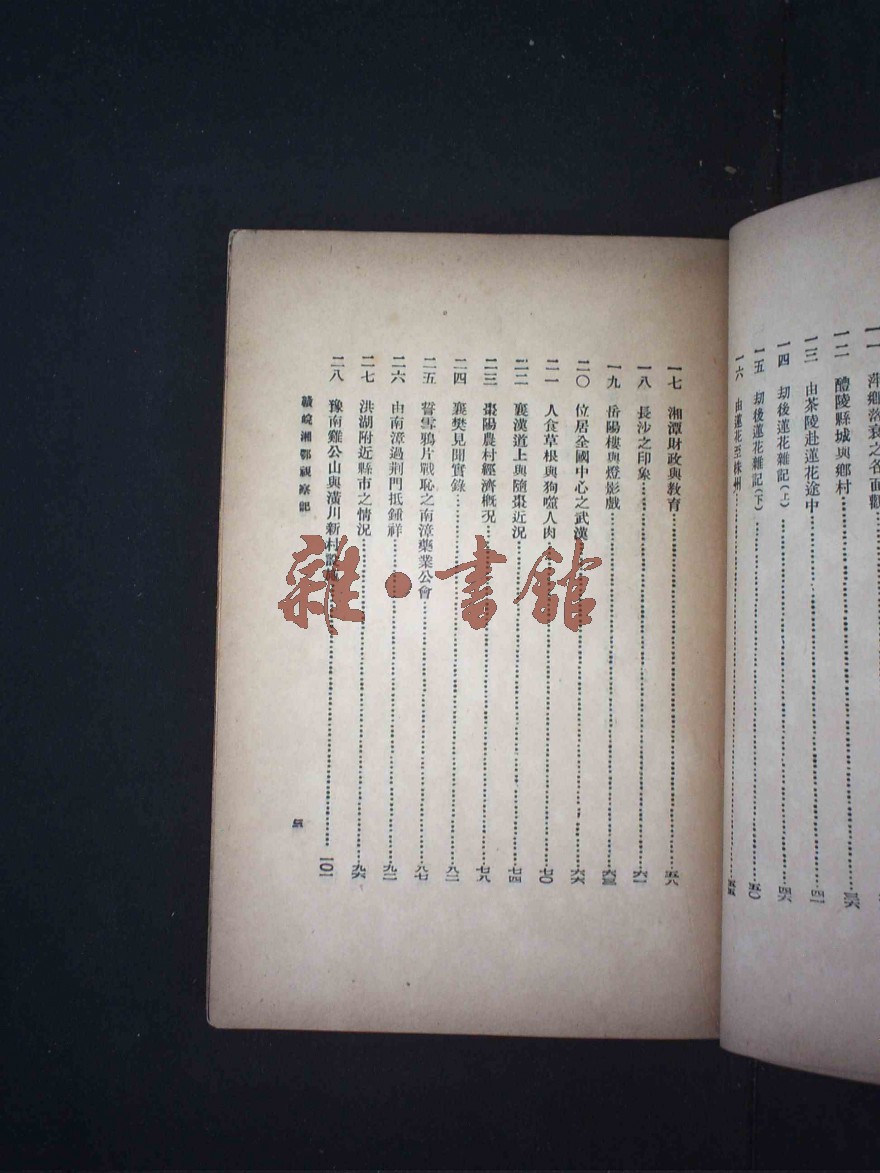 一二 醴陵縣城與鄉村 三六
一三 由茶陵赴蓮花途中 四一
一四 劫後蓮花雜記(上) 四六
一五 劫後蓮花雜記(下) 五〇
一六 由蓮花至株州 五五
一七 湘潭財政與教育 五八
一八 長沙之印象 六一
一九 岳陽樓與燈影戲 六三
二〇 位居全國中心之武漢 六六
二一 人食草根與狗噬人肉 七〇
二二 襄漢道上與隨棗近況 七四
二三 棗陽農村經濟概況 七八
二四 襄樊見聞實錄 八二
二五 誓雪鴉片戰恥之南漳藥業公會 八七
二六 由南漳過荆門抵鍾祥 九二
二七 洪湖附近縣市之情況 九六
二八 豫南雞公山與潢川新村 一〇一
贛皖湘鄂視察記
雜·書館